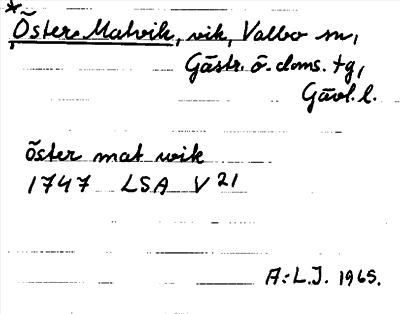 *Öster Matvik, vik, Valbo sn,
Gästr. ö. doms. tg,
Gävl. l.
öster mat wik
1747 LSA V 21
A:L.J. 1965.